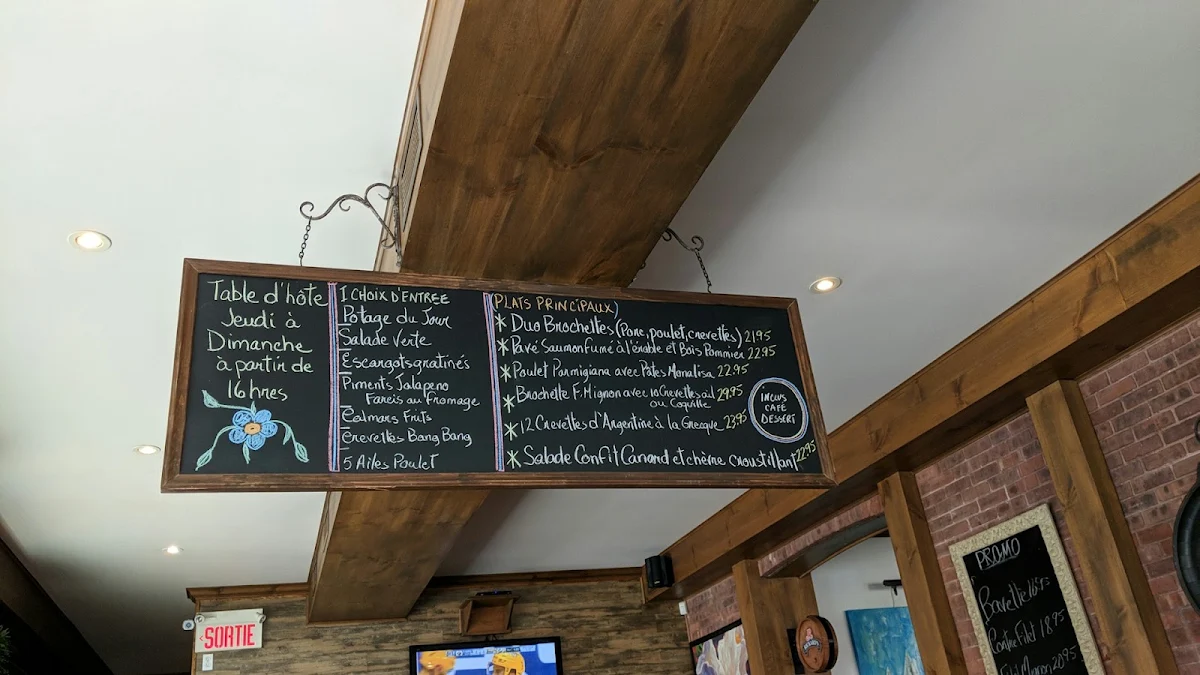 Table d'hôte
Jeudi à
Dimanche
à partir de
16 hres
1 CHOIX D'ENTREE
Potage du Jour
Salade Verte
Escargots gratinés
Piments Jalapeno
Farcis au fromage
Calmars Frits
Crevettes Bang Bang
5 Ailes Poulet
(PLATS PRINCIPAUX)
* Duo Brochettes (Porc, poulet, crevettes) 21.95
* Pavé Saumon fumé à l'érable et Bois Pommier 22.95
* Poulet Parmigiana avec Pates Monalisa 22.95
* Brochette F. Mignon avec 10 Crevettes ail 29.95
ou Coquille
* 12 Crevettes d'Argentine à la Grecque 23.95
* Salade Confit Canard et chèvre croustillant 22.95
INCLUS
CAFÉ
DESSERT
SORTIE
PROMO
Bavette 16.95
Contre Filet 18.95
Filet Mignon 20.95